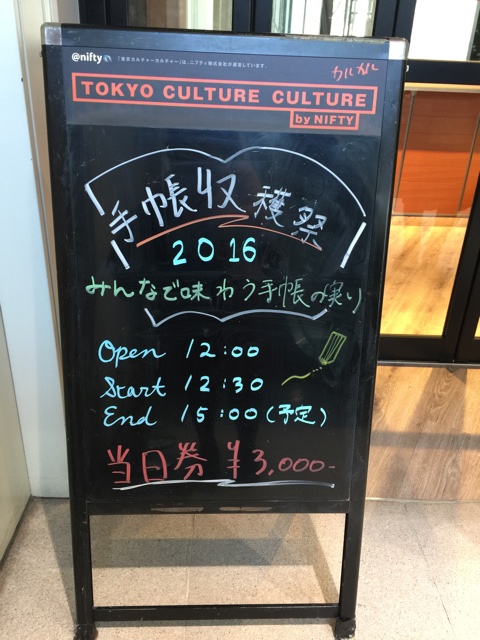 @nifty 「東京カルチャーカルチャー」は、ニフティ株式会社が運営しています。
カルカル
TOKYO CULTURE CULTURE
by NIFTY
手帳収穫祭
2016
みんなで味わう手帳の実り
Open 12:00
Start 12:30
End 15:00(予定)
当日券 ¥3,000-